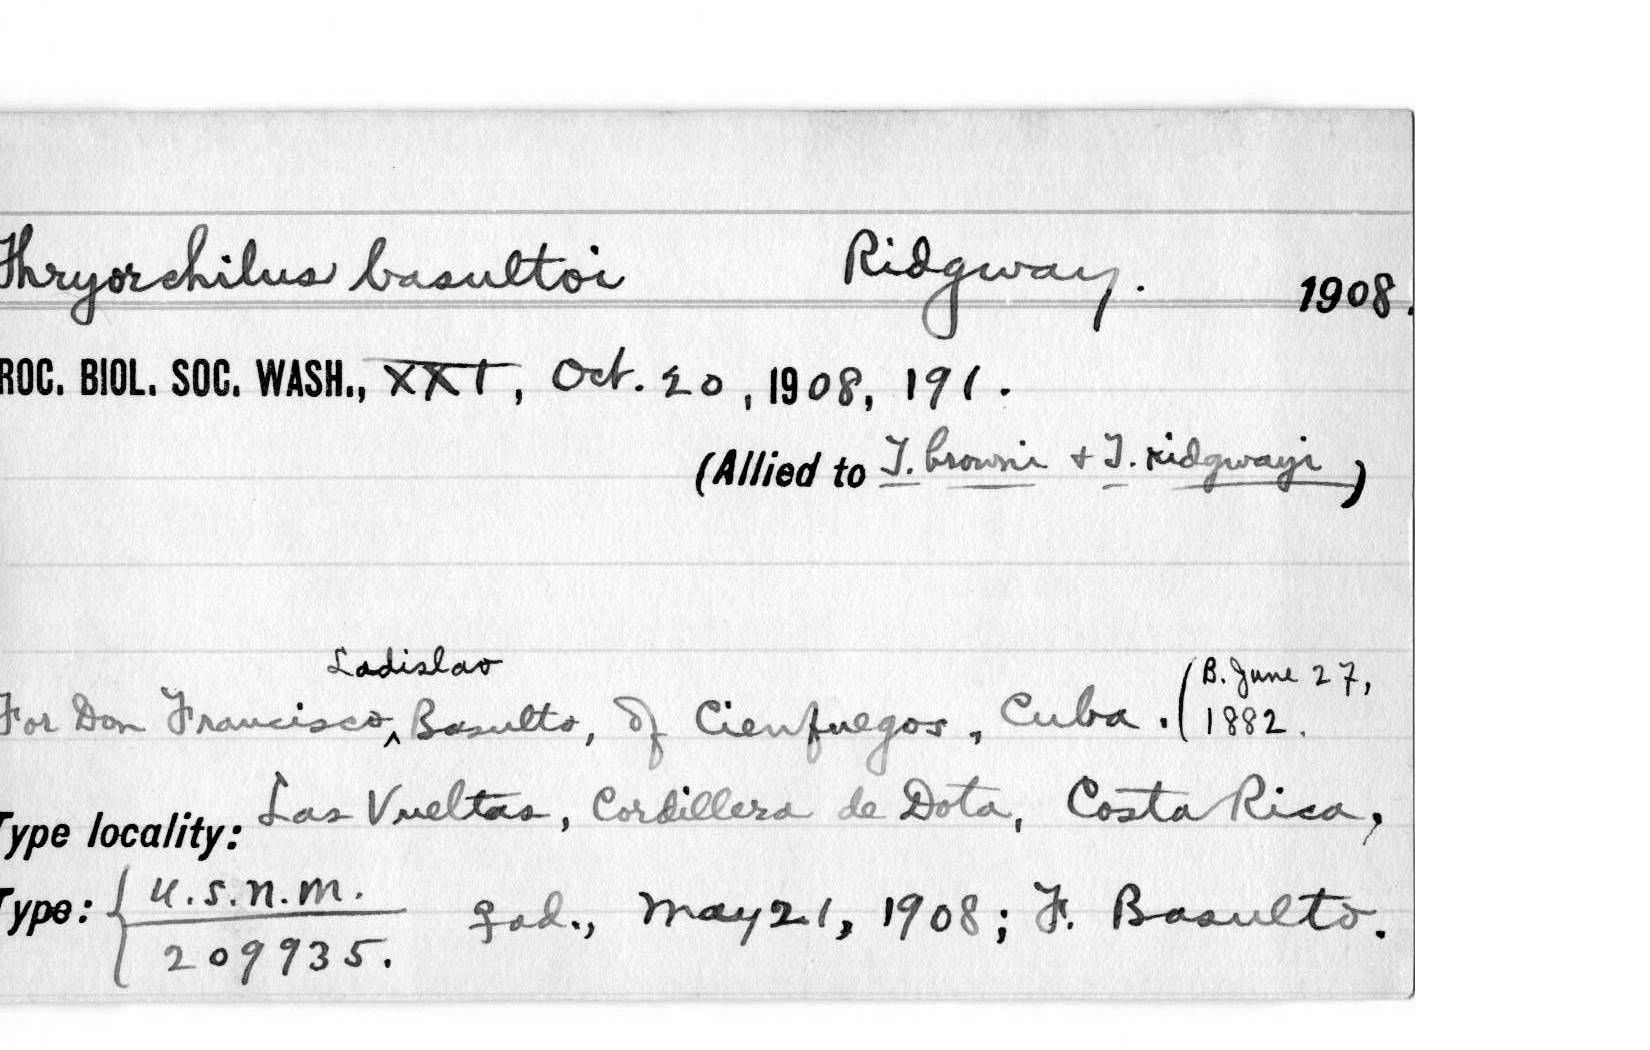 Thryorchilus basultoi Ridgway. 1908.
ROC. BIOL. SOC. WASH., XXI, Oct. 20, 1908, 191.
(Allied to T. browni + T. ridgwayi)
Ladislao
For Don Francisco ^ Basulto, of Cienfuegos, Cuba. (B. June 27,
1882.
Type locality: Las Vueltas, Cordillera de Dota, Costa Rica,
Type: { U.S.N.M. ♀ad., May 21, 1908; F. Basulto.
209935.